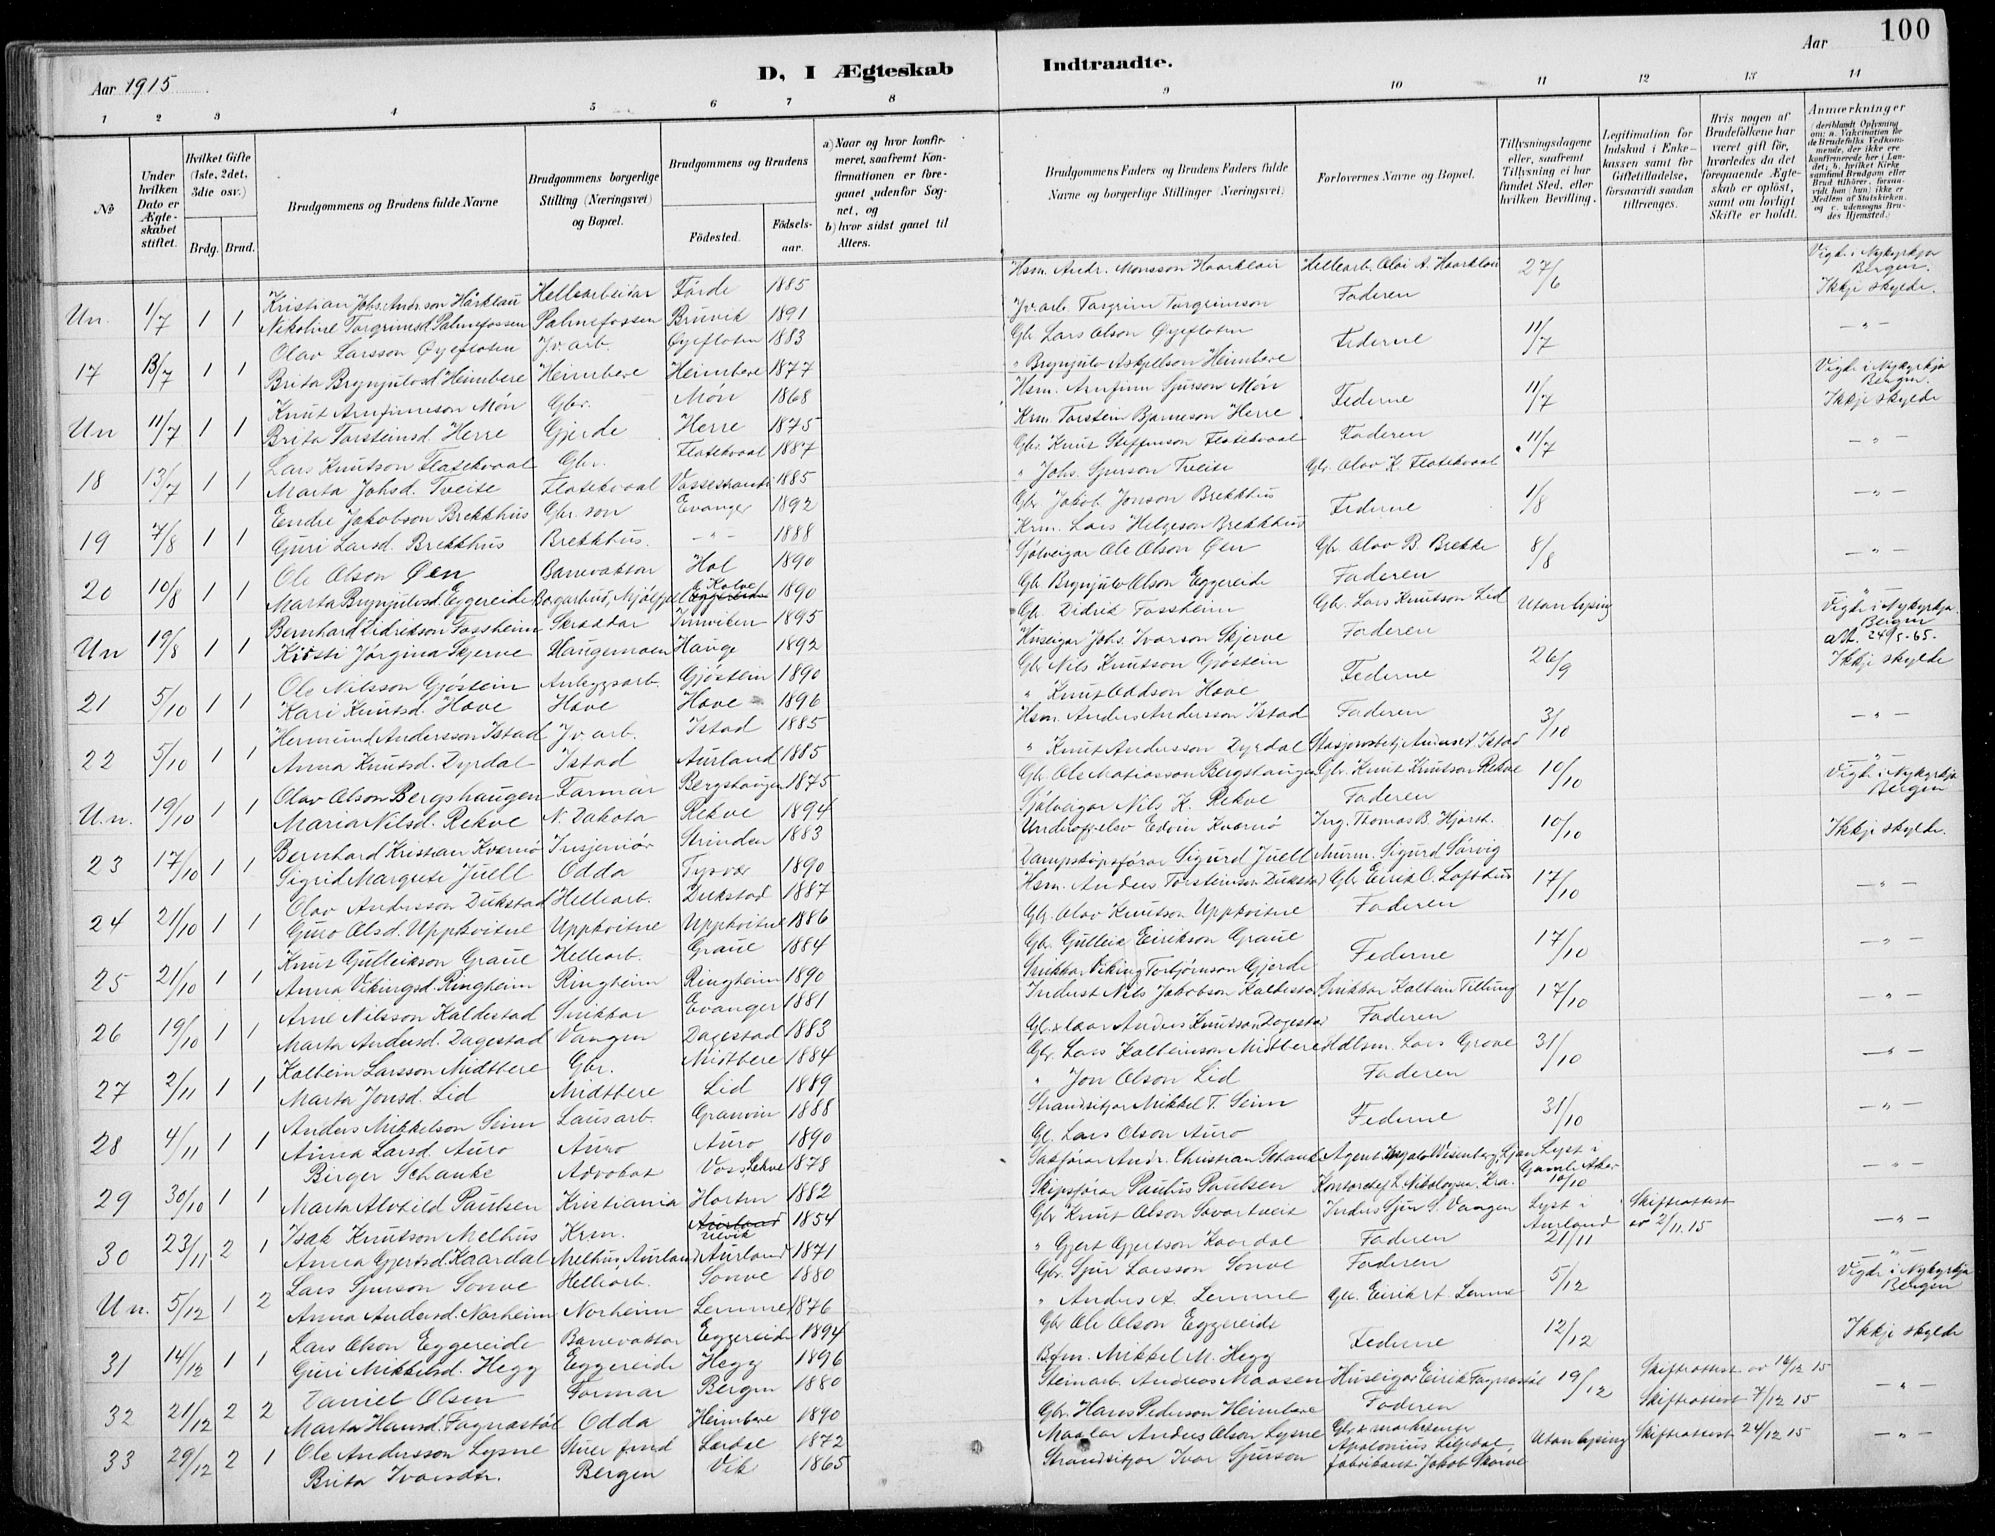 Aar 1915
D, I Ægteskab
Indtraadte.
Aar
100
1 2 3 4 5 6 7 8
9 10 11 12 13 14
№
Under hvilken Dato er Ægteskabet stiftet.
Hvilket Gifte (1ste, 2det, 3die osv.)
Brdg. Brud.
Brudgommens og Brudens fulde Navne
Brudgommens borgerlige Stilling (Næringsvei) og Bopæl.
Brudgommens og Brudens
Fødested.
Fødselsaar.
a) Naar og hvor konfirmeret, saafremt Konfirmationen er foregaaet udenfor Sognet, og
b) hvor sidst gaaet til Alters.
Brudgommens Faders og Brudens Faders fulde Navne og borgerlige Stillinger (Næringsvei)
Forlovernes Navne og Bopæl.
Tillysningsdagene eller, saafremt Tillysning ei har fundet Sted, efter hvilken Bevilling.
Legitimation for Indskud i Enkekassen samt for Giftetilladelse, forsaavidt saadan tiltrænges.
Hvis nogen af Brudefolkene har været gift før, hvorledes da det foregaaende Ægteskab er opløst, samt om lovligt Skifte er holdt.
Anmærkninger (deriblandt Oplysning om: a. Vakcination for de Brudefolks Vedkommende, der ikke ere konfirmerede her i Landet; b. hvilket Kirkesamfund Brudgom eller Brud tilhører, forsaavidt han (hun) ikke er Medlem af Statskirken, og c. udensogns Brudes Hjemsted.)
Un. 1/7 1 1 Kristian Johs. Andrson Hårklau Hellearbeidar Førde 1885 Hsm. Andr. Monsson Haarklau Hellearb. Olai A. Haarklau 27/6 Vigde i Nykyrkja Bergen.
Nikoline Torgrimsd. Palmafossen Palmafossen Bruvik 1891 Jv.arb. Torgrim Torgrimson Faderen Ikkje skylde.
17 13/7 1 1 Olav Larsson Øyefloten Jv. arb. Øyefloten 1883 Gbr Lars Olson Øyefloten Federne 11/7 — " —
Brita Brynjulvsd. Heimbere Heimbere Heimbere 1877 " Brynjulv Askjellson Heimbere
Un 11/7 1 1 Knut Arnfinnson Møn Gbr. Møn 1868 Hsm. Arnfinn Sjurson Møn Federne 11/7 Vigde i Nykyrkja Bergen.
Brita Torsteinsd. Herre Gjerde Herre 1875 Krm. Torstein Bjarneson Herre Ikkje skylde
18 13/7 1 1 Lars Knutson Flatekvaal Gbr. Flatekvaal 1887 Gbr. Knut Steffenson Flatekvaal Faderen 11/7 — " —
Marta Johsd. Tveite Flatekvaal Vossestrandi 1885 " Johs. Sjurson Tveite Gbr. Olav K. Flatekvaal
19 7/8 1 1 Endre Jakobson Brekkhus Gbr. son Evanger 1892 Gbr Jakob Jonson Brekkhus Federne 1/8 — " —
Guri Larsd. Brekkhus Brekkhus. — " — 1888 Krm. Lars Helgeson Brekkhus
20 10/8 1 1 Ole Olson Øen Banevaktar Hol 1890 Sjølveigar Ole Olson Øen Gbr. Olav B. Brekke 8/8 — " —
Marta Brynjulvsd. Eggereide Borgarhus, Mjølfjell Eggereide 1890 Gbr. Brynjulv Olson Eggereide Faderen
Un 19/8 1 1 Bernhard Didrikson Fossheim Skræddar Innviken 1895 Gbr. Didrik Fossheim Gbr. Lars Knutson Lid Utan lysing Vigde i Nykyrkja. Bergen
Kirsti Jørgina Skjerve Haugamoen Hauge 1892 Huseigar Johs. Ivarson Skjerve Faderen att. 24/5-65.
21 5/10 1 1 Ole Nilsson Gjøstein Anleggsarb. Gjøstein 1890 Gbr Nils Knutson Gjøstein Federne 26/9 Ikkje skylde
Kari Knutsd. Hove Hove Hove 1896 " Knut Oddson Hove
22 5/10 1 1 Hermund Andersson Istad Jv. arb. Istad 1885 Hsm. Anders Andersson Istad Faderen 3/10 — " —
Anna Knutsd. Dyrdal Istad Aurland 1885 " Knut Andersson Dyrdal Istad
U.n. 19/10 1 1 Olav Olson Bergshaugen Farmar Bergshaugen 1875 Gbr. Ole Matiasson Bergshaugen Gbr. Knut Knutson Rekve 10/10 Vigde i Nykyrkja Bergen
Maria Nilsd. Rekve N. Dakota Rekve 1894 Sjølveigar Nils K. Rekve Faderen
23 17/10 1 1 Bernhard Kristian Kværnø Insjeniør Strinden 1883 Underoffiser Edvin Kværnø Ing. Thomas B. Hjorth. 10/10 Ikkje skylde.
Sigrid Margrete Juell Odda Tysvær 1890 Dampskipsførar Sigurd Juell Murm. Sigurd Sørvig
24 21/10 1 1 Olav Andersson Dukstad Hellearb. Dukstad 1887 Hsm. Anders Torsteinson Dukstad Gbr Eirik O. Lofthus 17/10 — " —
Guro Olsd. Uppkvitne Uppkvitne Uppkvitne 1886 Gbr. Olav Knutson Uppkvitne Faderen
25 21/10 1 1 Knut Gulleikson Graue Hellearb. Graue 1884 Gbr. Gulleik Eirikson Graue Federne 17/10 — " —
Anna Vikingsd. Ringheim Ringheim Ringheim 1890 Snikkar Viking Torbjørnson Gjerde
26 19/10 1 1 Arne Nilsson Kaldestad Snikkar Evanger 1881 Inderst Nils Jakobson Kaldestad Snikkar Kolbein Tillung 17/10 — " —
Marta Andersd. Dagestad Vangen Dagestad 1883 Gbr. & lærar Anders Knutson Dagestad Faderen
27 2/11 1 1 Kolbein Larsson Midtbere Gbr. Midtbere 1884 Gbr. Lars Kolbeinson Midtbere Hdlsm. Lars Grove 31/10 — " —
Marta Jonsd. Lid Midtbere Lid 1889 " Jon Olson Lid Faderen
28 4/11 1 1 Anders Mikkelson Seim Lausarb. Granvin 1888 Strandsitjar Mikkel T. Seim Federne 31/10 — " —
Anna Larsd. Auro Auro Auro 1890 Gbr. Lars Olson Auro
29 30/10 1 1 Birger Schanke Advokat Voss, Lekve 1878 Sakførar Andr. Christian Schanke Agent Lyst i Gamle Aker 10/10 — " —
Marta Alvhild Paulsen Kristiania Horten 1882 Skipsførar Paulus Paulsen Kontorchef L. Nikolaysen, Kra.
30 23/11 2 1 Isak Knutson Melhus Krm. Aurland Ulvik 1854 Gbr Knut Olson Svartveit Inders. Sjur S. Vangen Lyst i Aurland 21/11 Skifteattest av 2/11.15 — " —
Anna Gjertsd. Kaardal Melhus, Aurland Aurland 1871 " Gjert Gjertson Kaardal Faderen
Un. 5/12 1 2 Lars Sjurson Sonve Hellearb. Sonve 1880 Gbr. Sjur Larsson Sonve Faderen 5/12 Vigde i Nykyrkja Bergen
Anna Andersd. Norheim Norheim Lemme 1876 " Anders A. Lemme Gbr. Eirik A. Lemme
31 14/12 1 1 Lars Olson Eggereide Banevaktar Eggereide 1894 Gbr Ole Olson Eggereide Federne 12/12 Ikkje skylde
Guri Mikkelsd. Hegg Eggereide Hegg 1896 Bfm. Mikkel M. Hegg
32 21/12 2 2 Daniel Olsen Formar Bergen 1880 Steinarb. Andreas Maasen Huseigar Eirik Fagnastøl 19/12 Skifteattest av 16/12 15 — " —
Marta Hansd. Fagnastøl Odda Heimbere 1890 Gbr. Hans Pederson Heimbere Faderen Skifteattest 7/12 15
33 29/12 2 1 Ole Andersson Lysne Lærdal 1872 Maalar Anders Olson Lysne Apolonius Lilledal, Utan lysing Skifteattest 24/12 15 — " —
Brita Ivarsdtr. Bergen Vik 1865 Strandsitjar Ivar Sjurson fabrikant Jakob Skorve